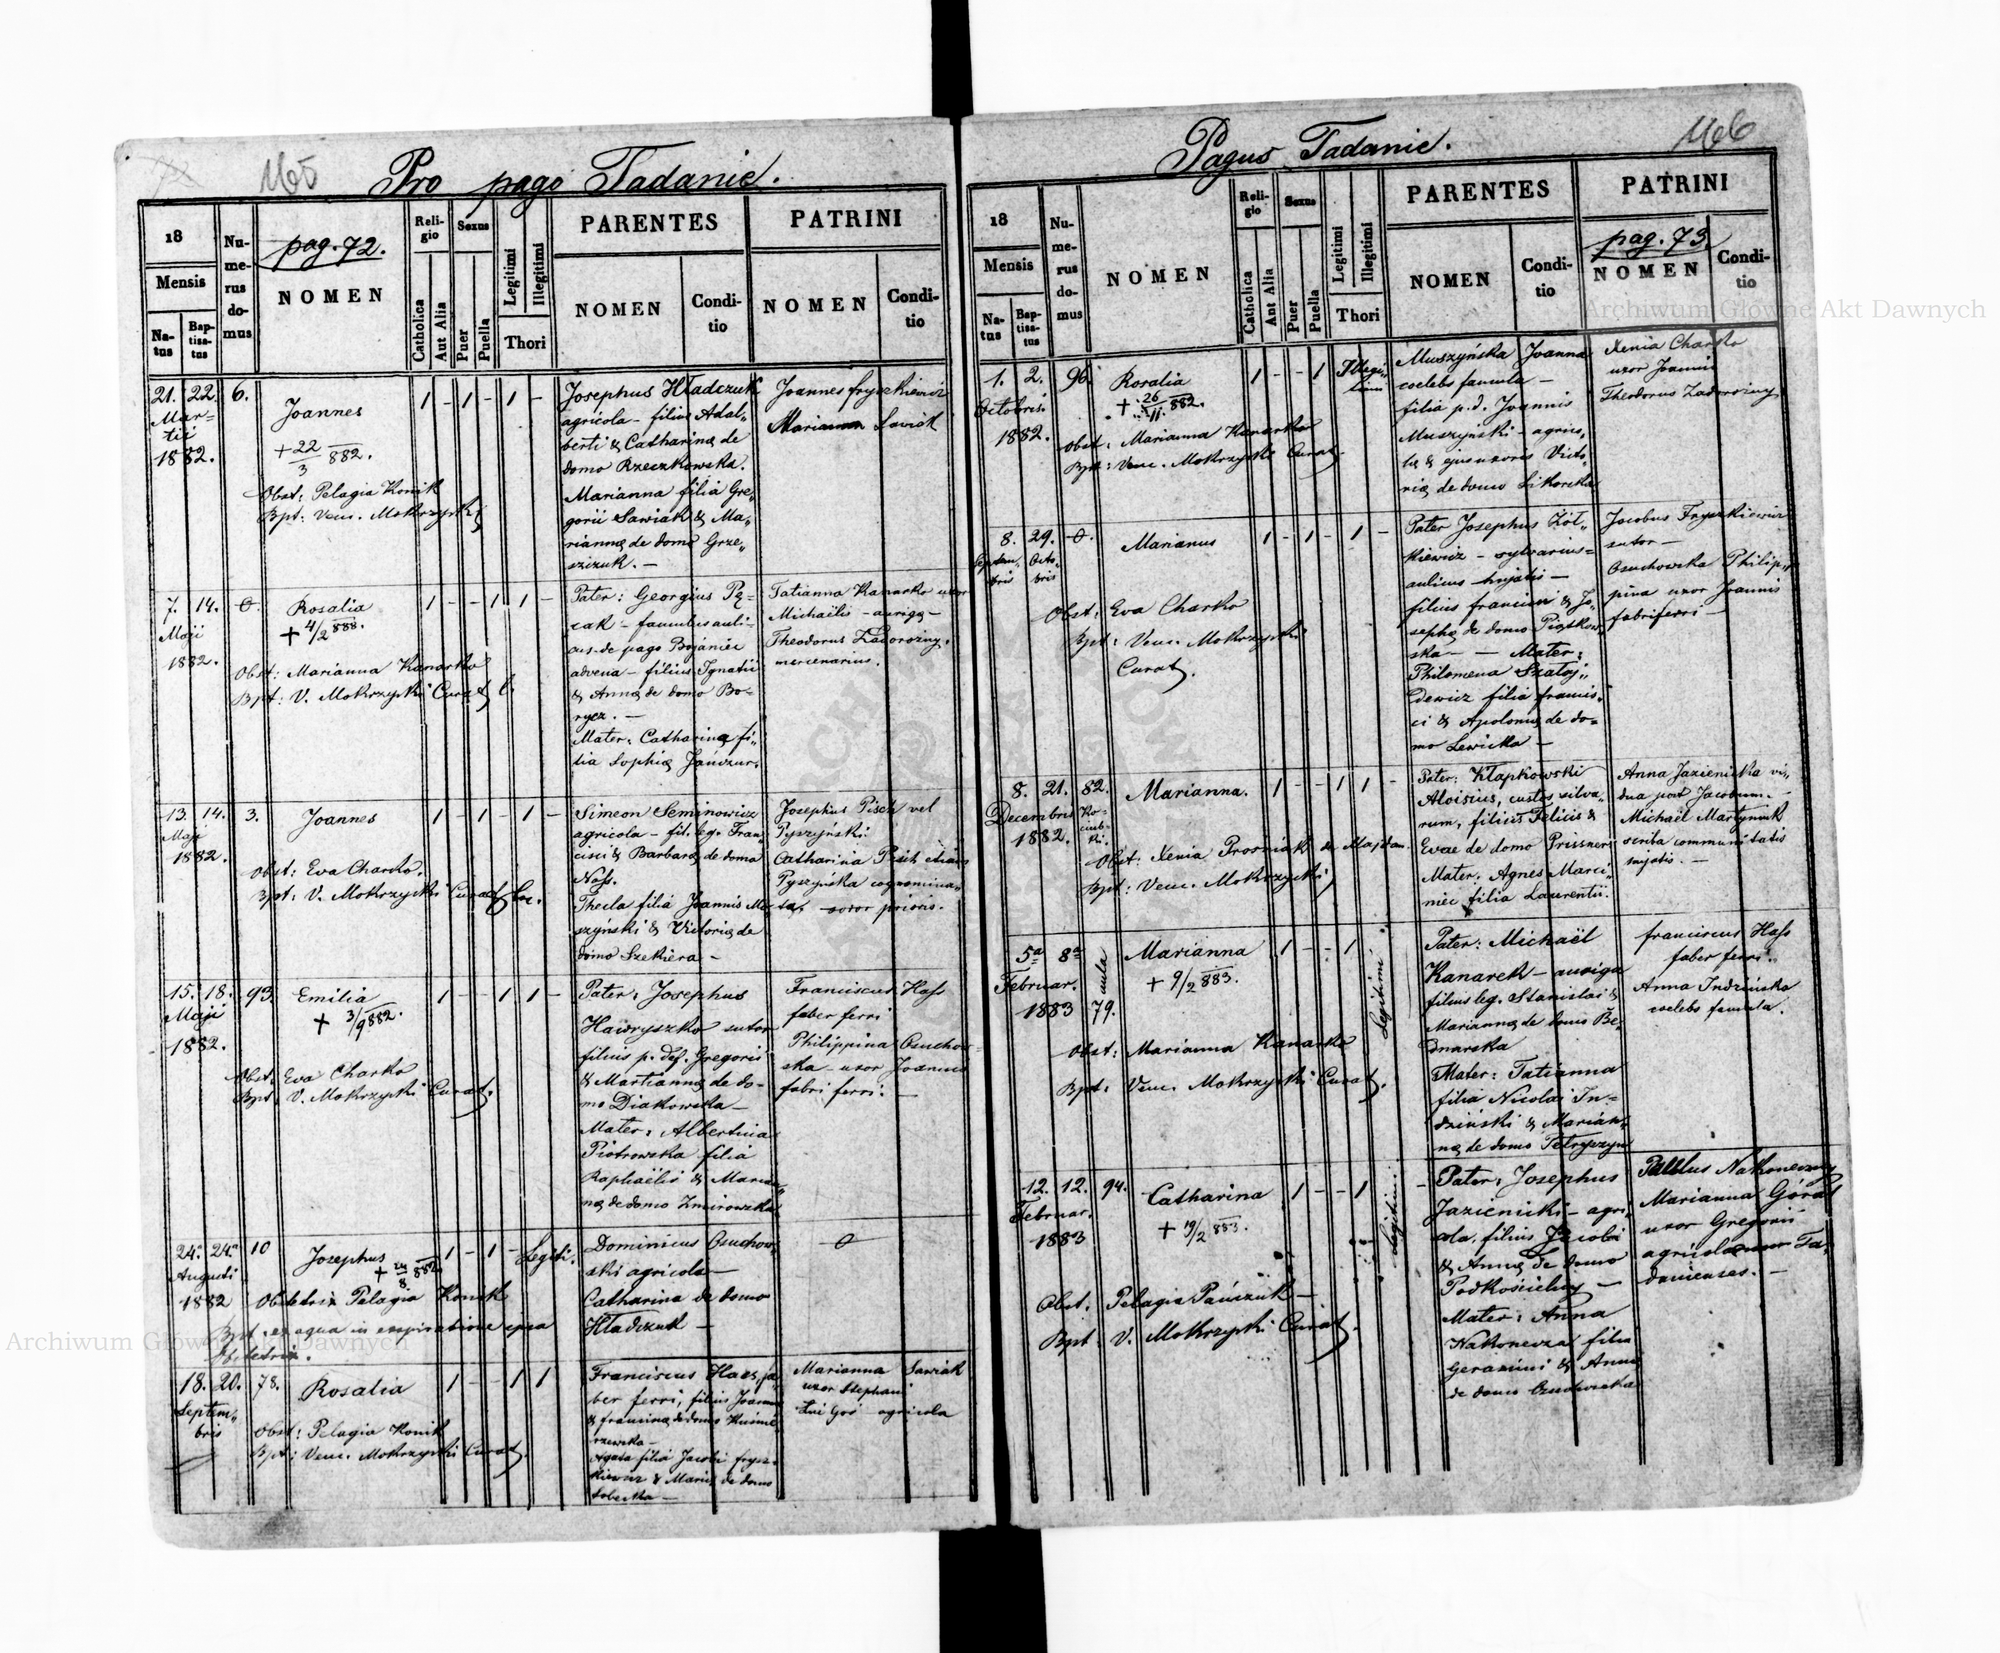 165
Pro pago Tadanie.
18
Mensis
Natus
Baptisatus
Numerus domus
pag. 72.
NOMEN
Religio
Catholica
Aut Alia
Sexus
Puer
Puella
Legitimi
Illegitimi
Thori
PARENTES
NOMEN
Conditio
PATRINI
NOMEN
Conditio
21. 22. 6.
Martii
1882.
Joannes
+ 22/3 882.
Obst: Pelagia Konik
Bpt: Ven. Mokrzycki
1 - 1 - 1 -
Josephus Hładczuk
agricola - filius Adal„
berti & Catharinę de
domo Rzeczkowska.
Marianna filia Gre„
gorii Sawiak & Ma„
riannę de domo Grze„
szczuk. -
Joannes Fryszkiewicz
Marianna Sawiak
7. 14. 0.
Maji
1882.
Rosalia
+ 4/2 888.
Obst: Marianna Kanarko
Bpt: V. Mokrzycki Curat
1 - - 1 1 -
Pater: Georgius
famulus auli=
cus de pago Bojaniec
advena - filius Ignatii
& Annę de domo Bo=
rycz. -
Mater: Catharina fi„
lia Sophię
Tatianna Kanarko uxor
Michaëlis - aurigę -
Theodorus Zadorożny.
mercenarius.
13. 14. 3.
Maji
1882.
Joannes
Obst: Eva Charko.
Bpt: V. Mokrzycki Curat
1 - 1 - 1 -
Simeon Seminowicz
agricola - fil. leg. Fran„
cisci & Barbarę de domo
Thecla filia Joannis Mu
szyński & Victorię de
domo Szekiera -
Josephus Pisch vel
Pyszyński
Catharina Pisch etiam
Pyszyńska cognomina„
ta, soror prioris.
15. 18. 93.
Maji
1882.
Emilia
+ 3/9 882.
Obst: Eva Charko
Bpt: V. Mokrzycki Curat.
1 - - 1 1 -
Pater: Josephus
Hawryszko sutor
filius p. def. Gregorii
& Mariannę de do-
mo Diakowska -
Mater: Albertina
Piotrowska filia
Raphaëlis & Marian„
nę de domo Zmirowska
Franciscus Hass
faber ferri
Philippina Osuchow„
ska - uxor Joannis
fabri ferri. -
24. 24. 10
Augusti
1882
Josephus
+ 24/8 882
Obstetrix Pelagia Konik
Bpt. ex aqua in exspiratione ipsa
Obstetrix.
1 - 1 - Legiti.
Dominicus Osuchow„
ski agricola -
Catharina de domo
Hładczuk -
0
18. 20. 78.
Septem„
bris
Rosalia
Obst: Pelagia Konik
Bpt: Ven. Mokrzycki Curat.
1 - - 1 1
Franciscus Hass, fa„
ber ferri, filius Joannis
& Francisca de domo Kuśmie
rzewska -
Agata filia Jacobi Frysz„
kiewicz & Marię de domo
Sobecka -
Marianna Sawiak
uxor Stephani
agricola
166
Pagus Tadanie.
18
Mensis
Natus
Baptisatus
Numerus domus
NOMEN
Religio
Catholica
Aut Alia
Sexus
Puer
Puella
Legitimi
Illegitimi
Thori
PARENTES
NOMEN
Conditio
PATRINI
pag. 73.
NOMEN
Conditio
1. 2. 96.
Octobris
1882.
Rosalia
+ 26/11 882.
Obst: Marianna Kanarko
Bpt: Ven. Mokrzycki Curat.
1 - - 1 Illegi„
timi
Muszyńska Joanna
coelebs famula -
filia p. d. Joannis
Muszyński - agrico„
lę & ejus uxoris Victo„
rię de domo Sikorska
Xenia Charko
uxor Joannis
Theodorus Zadorożny
8. 29. 0.
Septem„ Octo„
bris bris
Marianus
Obst: Eva Charko
Bpt: Ven. Mokrzycki
Curat.
1 - 1 - 1 -
Pater Josephus Żół„
kiewicz - sylvarius=
aulicus hujatis -
filius Francisci & Jo„
sephę de domo Piątkow„
ska - - Mater:
Philomena Szałaj„
dewicz filia Francis„
ci & Apolonię de do=
mo Lewicka -
Jacobus Fryszkiewicz
sutor -
Osuchowska Philip„
pina uxor Joannis
fabri ferri -
8. 21. 82.
Decembris
1882.
Marianna.
Obst: Xenia Prosniak de Majdan
Bpt: Ven. Mokrzycki
1 - - 1 1 -
Pater: Kłapkowski
Aloisius, custos silva„
rum, filius Felicis &
Evae de domo Prissner
Mater. Agnes Marci„
niec filia Laurentii.
Anna Jazienicka vi„
dua post Jacobum. -
Michaël Martyniuk
scriba communitatis
hujatis. -
5ª 8ª
Februar.
1883 79.
Marianna
+ 9/2 883.
Obst: Marianna Kanarko
Bpt: Ven. Mokrzycki Curat.
1 - - 1 Legitimi
Pater: Michaël
Kanarek - auriga
filius leg. Stanislai &
Mariannę de domo Be„
dnarska
Mater: Tatianna
filia Nicolai In=
dziński & Marian„
nę de domo Petryszyn
Franciscus Hass
faber ferri.
Anna Indzińska
coelebs famula.
12. 12. 94.
Februar.
1883
Catharina
+ 19/2 883.
Obst. Pelagia Pańczuk -
Bpt: V. Mokrzycki Curat.
1 - - 1 Legitimi -
Pater: Josephus
Jazienicki - agri„
cola, filius Jacobi
& Annę de domo
Podkościelny -
Mater: Anna
Nakoneczna filia
Gerasimi & Annę
de domo Osuchowska
Paulus Nakoneczny
Marianna Góral
uxor Gregorii
agricola Ta„
danienses. -
Archiwum Główne Akt Dawnych
Archiwum Główne Akt Dawnych